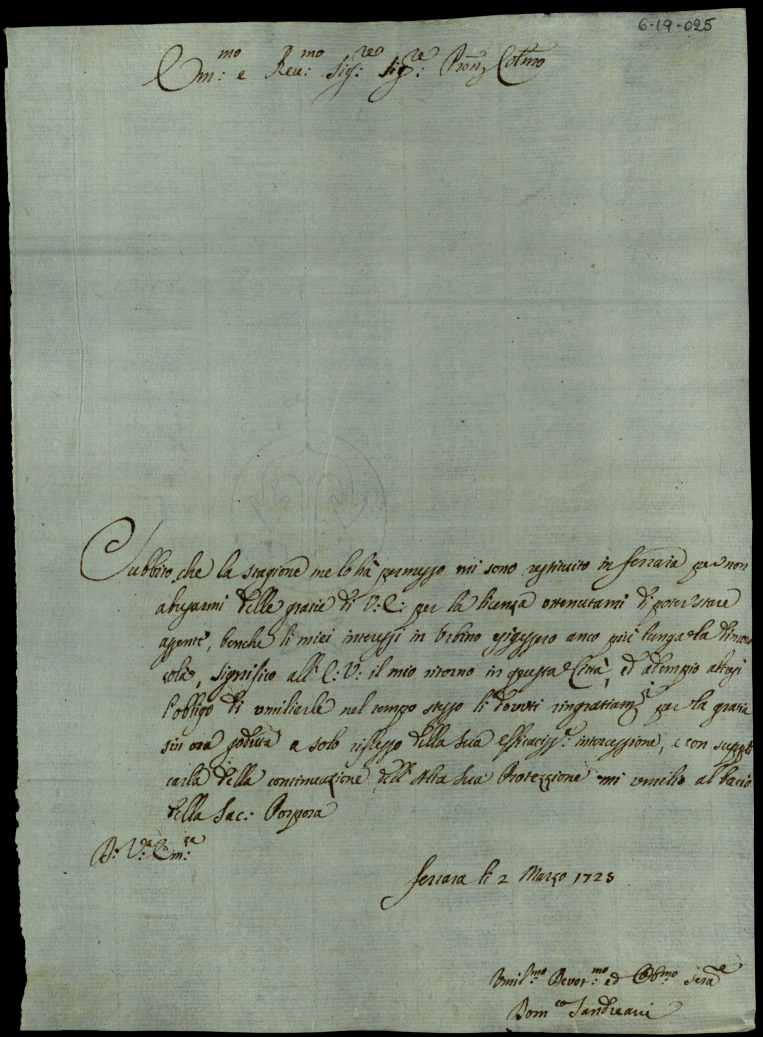 6-19-025
Em:mo e Reu:mo Sig:re Sig:re Pron Colmo
Subbito, che la stagione me lo hà permesso mi sono restituito in Ferrara per non
abusarmi delle gratie di V: E: per la licenza ottenutami di poter stare
assente, benche li miei interessi in Urbino esigessero anco più lunga la dimora
colà, significo all' E: V: il mio ritorno in questa Città, ed adempio altresì
l'obligo di umiliarle nel tempo stesso li dovuti ringratiamti per la gratia
sin ora goduta a solo riflesso della Sua efficaciss:a intercessione, e con suppli
carla della continuazione dell' Alta Sua Protezzione mi umilio al bacio
della Sac: Porpora
D: V:a Em:za
Ferrara li 2 Marzo 1725
Umil:mo Devot:mo ed Obb:mo Serre
Dom:co Sandreani